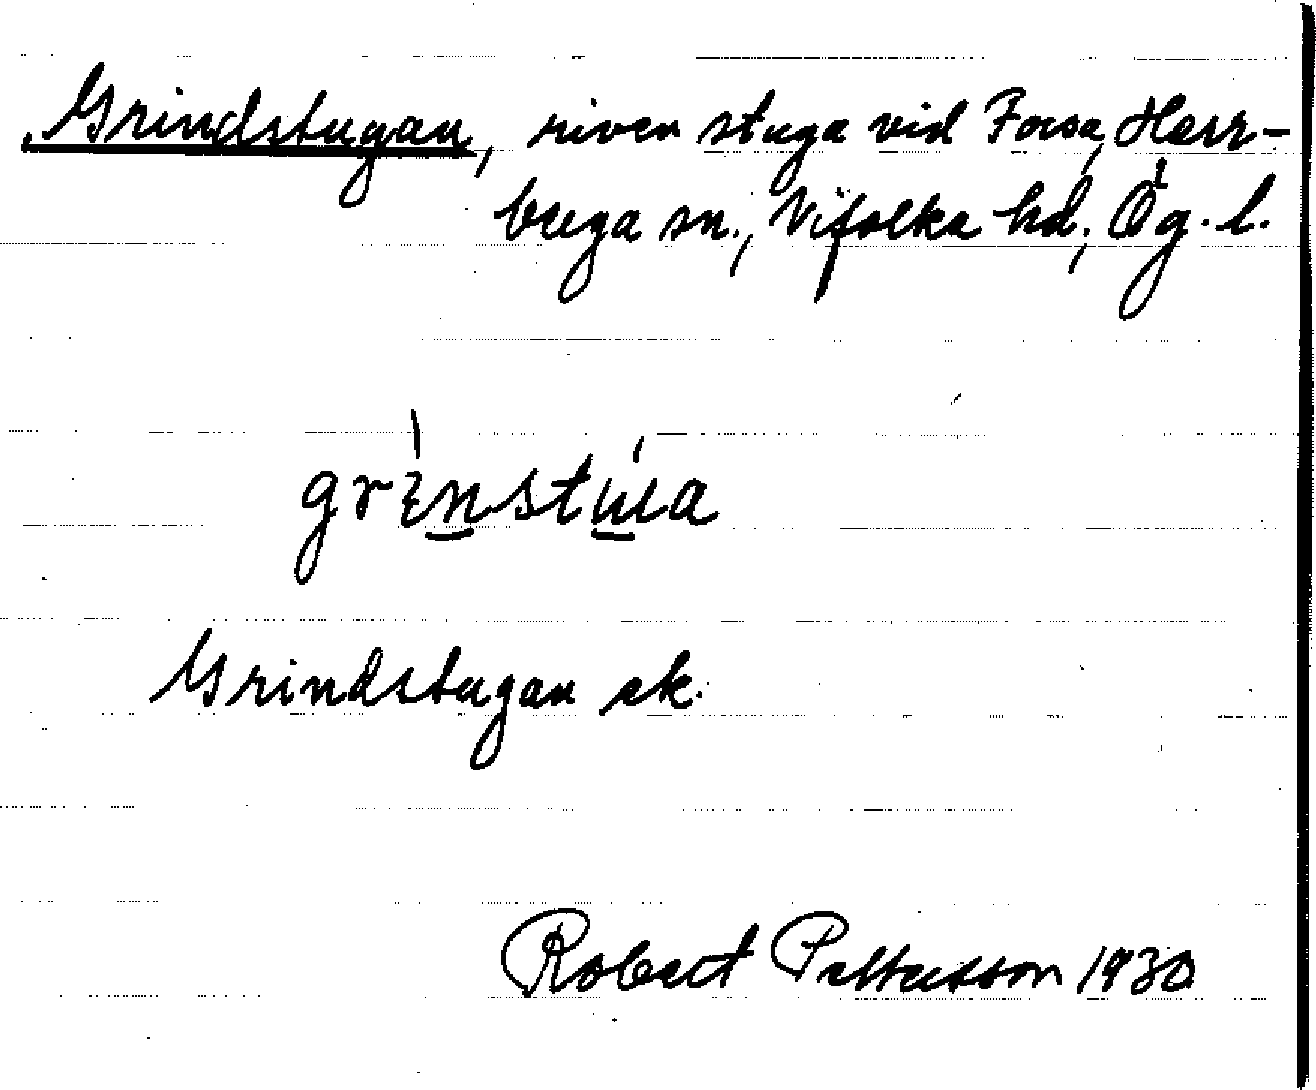 Grindstugan, riven stuga vid Forsa, Herr-
berga sn., Vifolka hd, Ög. l.
grìnstúa
Grindstugan ek.
Robert Pettersson 1930